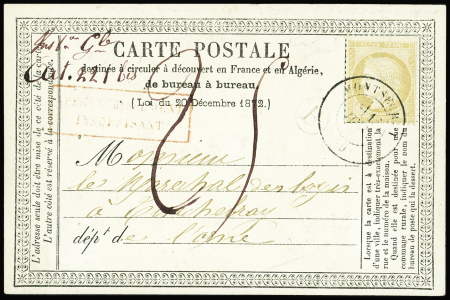 Cat. 221 bis
CARTE POSTALE
destinée à circuler à découvert en France et en Algérie,
de bureau à bureau
(Loi du 20 Décembre 1872.)
25
MONTSE
A Monsieur
le Maréchal des logis
à
dépt de l'orne
L'adresse seule doit être mise de ce côté de la carte.
L'autre côté est réservé à la correspondance.
Lorsque la carte est à destination
d'une ville, indiquer très-exactement la
rue et le numéro de la maison.
Quand elle est destinée pour une
commune rurale, indiquer le nom du
bureau de poste qui la dessert.